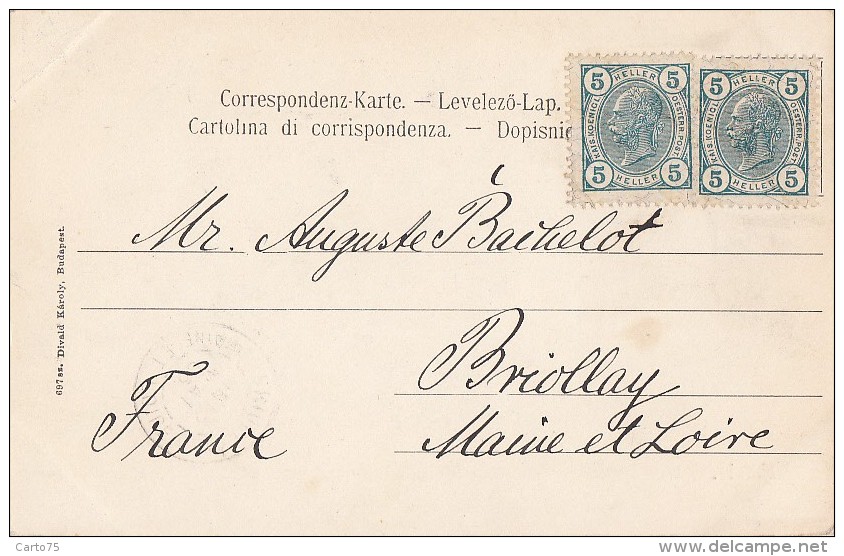 Correspondenz-Karte. — Levelező-Lap.
Cartolina di corrispondenza. — Dopisnic
5 HELLER 5
KAIS. KOENIGL. OESTERR. POST
5 HELLER 5
5 HELLER 5
KAIS. KOENIGL. OESTERR. POST
5 HELLER 5
Mr. Auguste Bachelot
Briollay
Maine et Loire
France
697 sz. Divald Károly, Budapest.
Carto75
delcampe.net